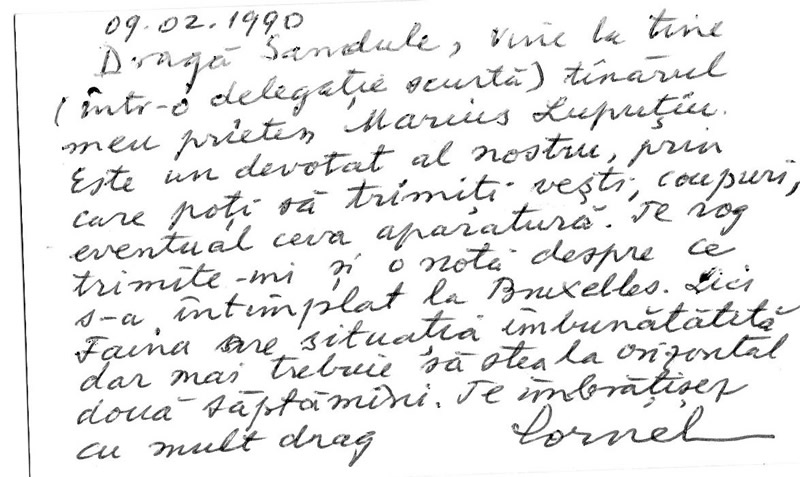 09.02.1990
Dragă Sandule, vine la tine
(într-o delegație scurtă) tînărul
meu prieten Marius Lupuțiu.
Este un devotat al nostru, prin
care poți să trimiți vești, coupuri,
eventual ceva aparatură. Te rog
trimite-mi și o notă despre ce
s-a întîmplat la Bruxelles. Lici
Faina are situația îmbunătățită
dar mai trebuie să stea la orizontal
două săptămîni. Te îmbrățișez
cu mult drag Cornel